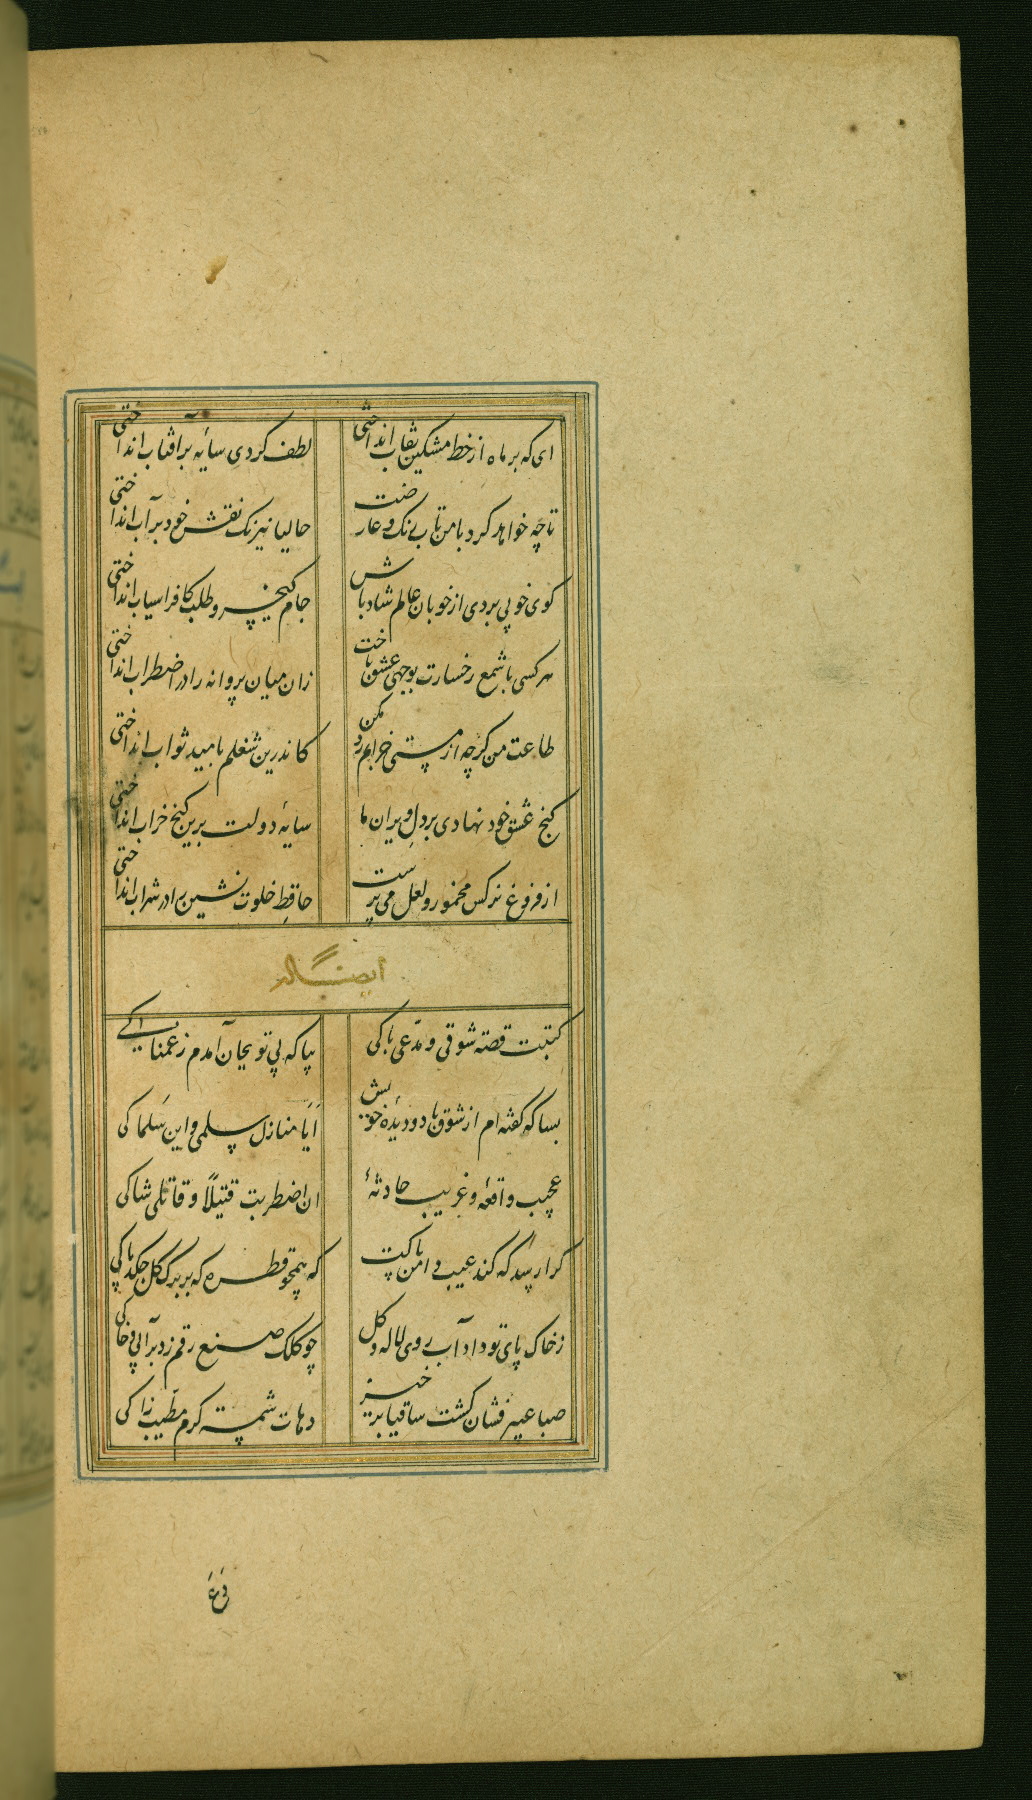 ای که بر ماه از خط مشکین نقاب انداختی لطف کردی سایهٔ بر آفتاب انداختی
تا چه خواهد کرد با من تاب و رنک عارضت حالیا نیرنک نقش خود بر آب انداختی
کوی خوبی بردی از خوبان عالم شاد باش جام کیخسرو طلب کافراسیاب انداختی
هر کسی با شمع رخسارت بوجهی عشق باخت زان میان پروانه را در اضطراب انداختی
طاعت من کرچه از مستی خرابم رد مکن کاندرین شغلم بامید ثواب انداختی
کنج عشق خود نهادی بر دل ویران ما سایهٔ دولت برین کنج خراب انداختی
از فروغ نرکس مخمور و لعل می پرست حافظ خلوت نشین را در شراب انداختی
ایضاً له
کتبت قصته شوقی و مدّعی باکی بیا که بی تو بجان آمدم ز غمناکی
بسا که کفته ام از شوق با دو دیدهٔ خویش اَیا منازل سلمی و این سَلماکی
عجیب واقعهٔ و غریب حادثهٔ ان اضطربت قتیلاً و قاتلی شاکی
کرا رسد که کند عیب دامن پاکت که همچو قطره که بر برک کل چکد پاکی
ز خاک پای تو داد آب روی لاله و کل چو کلک صنع رقم زد بر آبی و خاکی
صبا عبیر فشان کشت ساقیا برخیز و هات شمسة کرم مطیّب زاکی
دَع